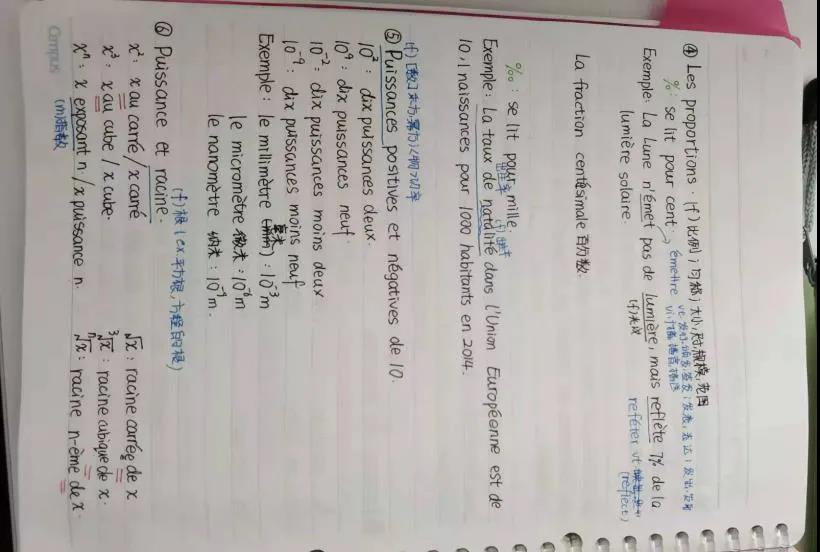 ④ Les proportions. (f) 比例；匀称；大小,尺寸,规模,范围
%: se lit pour cent. → émettre vt 发射
Exemple: La Lune n'émet pas de lumière, mais reflète 7% de la
lumière solaire.
(f) 光
refléter vt
(reflect)
La fraction centésimale 百分数.
‰: se lit pour mille.
出生率
Exemple: La taux de natalité dans l'Union Européenne est de
10,1 naissances pour 1000 habitants en 2014.
⑤ Puissances positives et négatives de 10.
10²: dix puissances deux.
10⁹: dix puissances neuf.
10⁻²: dix puissances moins deux
10⁻⁹: dix puissances moins neuf
Exemple: le millimètre 毫米: 10⁻³m
le micromètre 微米: 10⁻⁶m
le nanomètre 纳米: 10⁻⁹m.
⑥ Puissance et racine.
(f) 根 (ex 平方根,方程的根)
x²: x au carré / x carré
x³: x au cube / x cube.
xⁿ: x exposant n / x puissance n.
(m) 指数
√x: racine carrée de x
³√x: racine cubique de x.
ⁿ√x: racine n-ème de x.
Campus